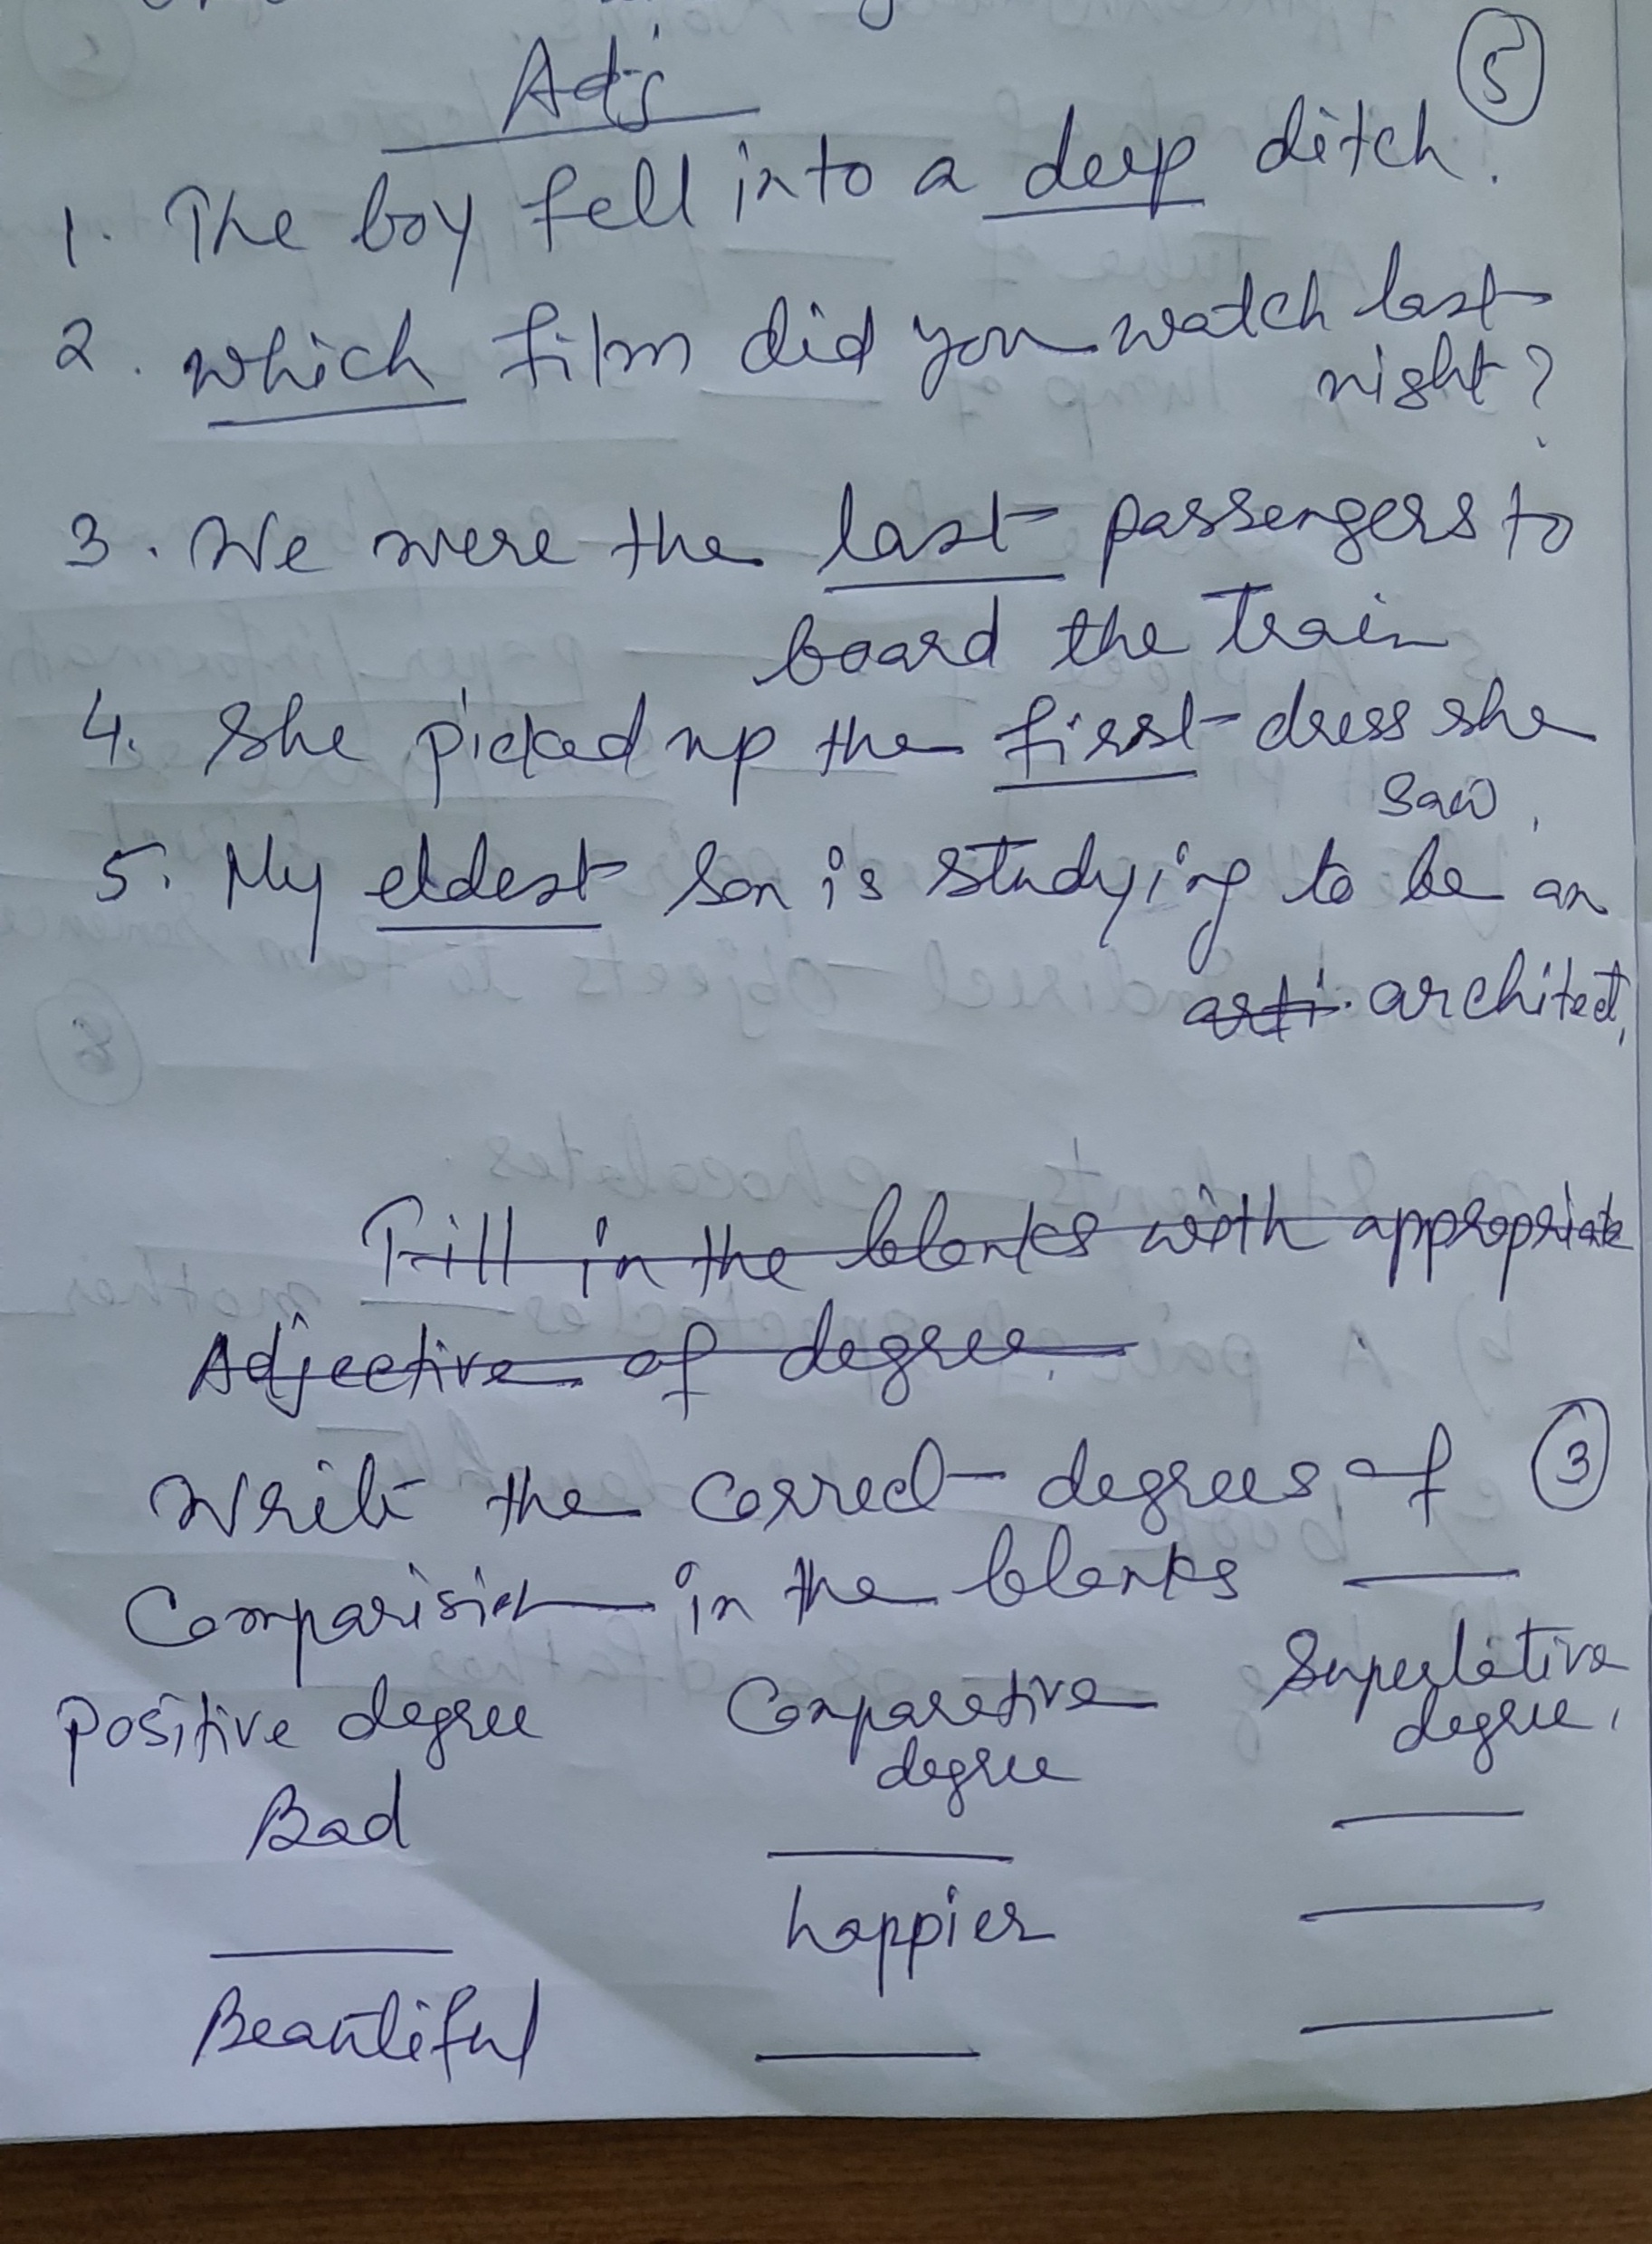 Adj
5
1. The boy fell into a deep ditch.
2. which film did you watch last
night?
3. We were the last passengers to
board the Train
4. She picked up the first dress she
saw.
5. My eldest son is studying to be an
arti. architect.
Fill in the blanks with appropriate
Adjective of degree.
Write the correct degrees of 3
Comparision in the blanks
Positive degree Comparative degree Superlative degree.
Bad
happier
Beautiful